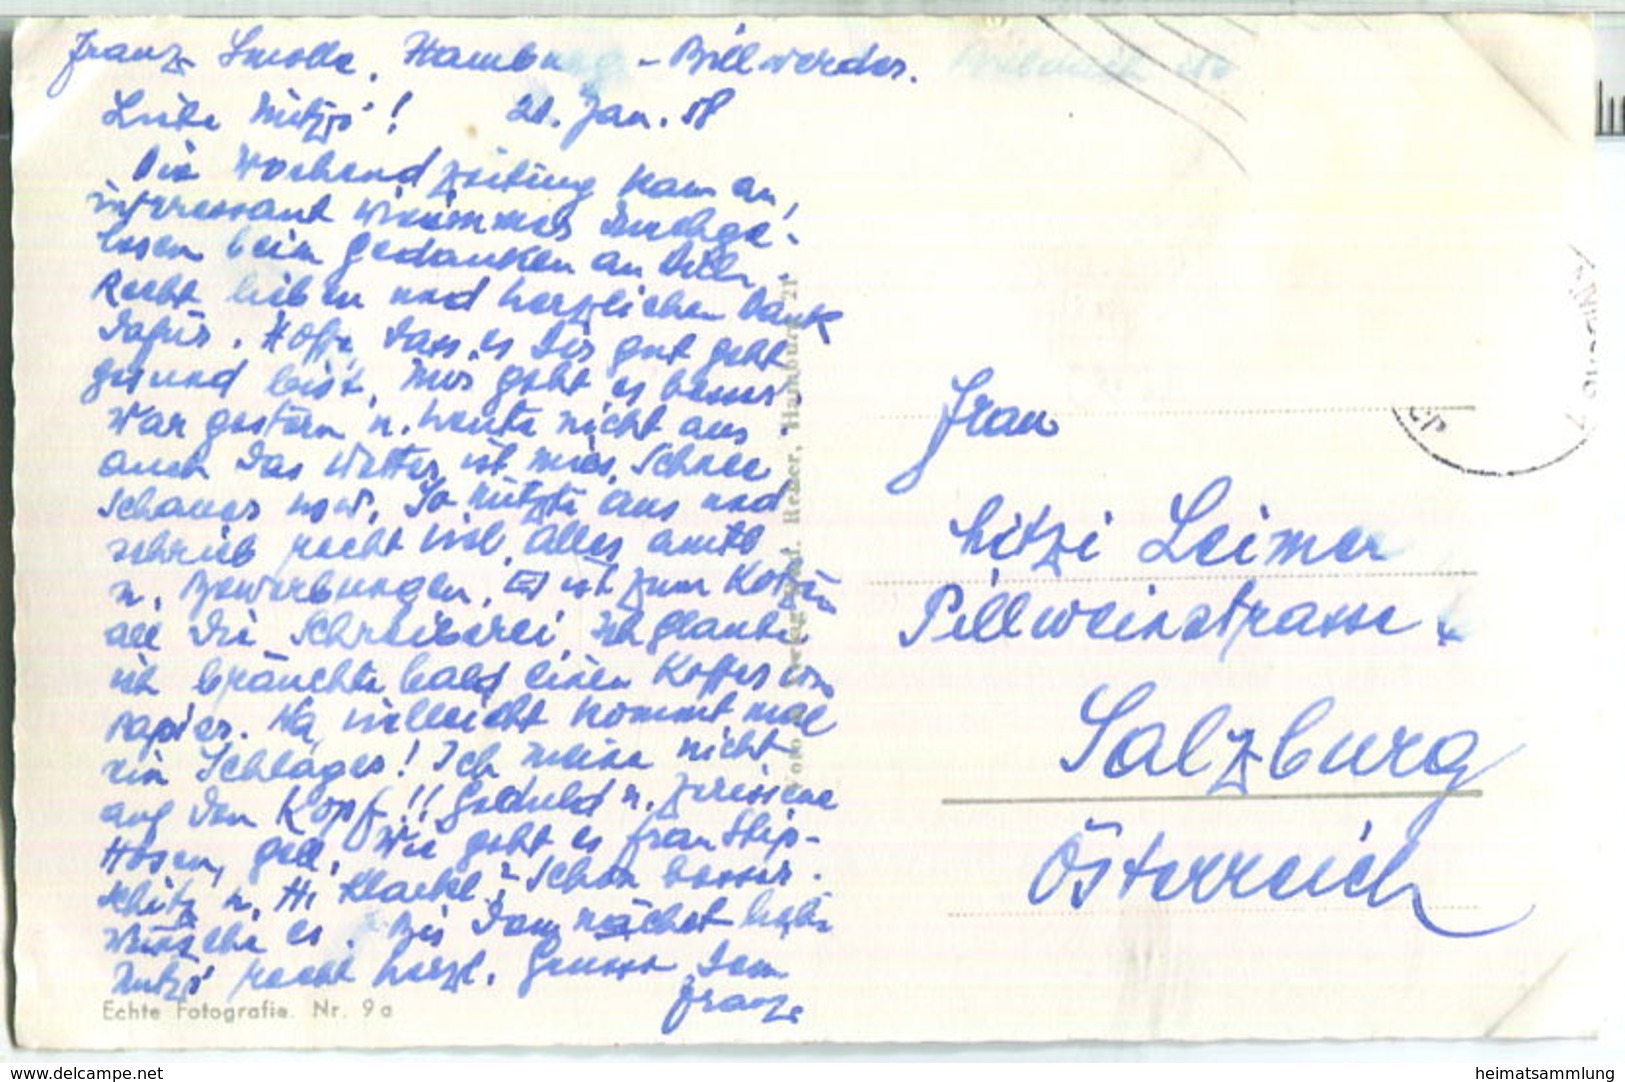 Franz Smolla, Hamburg - Billwerder.
Liebe Mitzi! 21. Jan. 58
Die Wochend Zeitung kam an,
interessant wie immer durchge-
lesen beim gedanken an Dich.
Recht lieben und herzlichen Dank
dafür. Hoffe dass es Dir gut geht
gesund bist, mir geht es besser.
War gestern u. heute nicht aus
auch das Wetter ist mies, Schnee
schauer usw. So nützte aus und
schrieb recht viel. Alles amtl.
u. Bewerbungen. Es ist zum Kotzen
all die Schreiberei, ich glaube
ich bräuchte bald einen Koffer von
Papier. Na, vielleicht kommt mal
ein Schlager! Ich meine nicht
auf den Kopf!! Geduld u. zerissene
Hosen, gell. Wie geht es Frau
u. Schon besser.
Wünsche es. Bis demnächst liebe
Mitzi recht herzl. Grüsse Dein
Franz
Echte Fotografie. Nr. 9a
Foto u. Verlag Reder, Hamburg 21
Frau
Mitzi Leimer
Pillweinstrasse
Salzburg
Österreich
www.delcampe.net
heimatsammlung